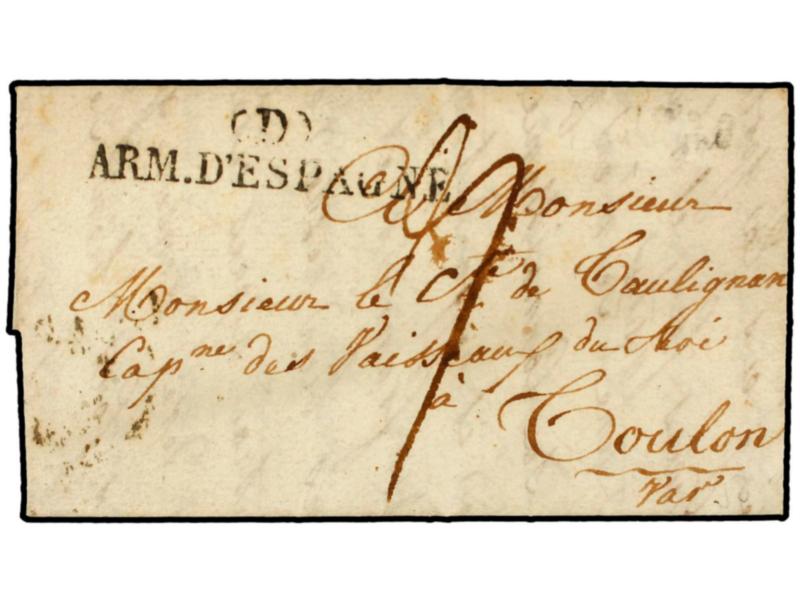 (D)
ARM. D'ESPAGNE
A Monsieur
Monsieur le Cte de Taulignan
Capne des Vaisseaux du Roi
à
Toulon
Var.